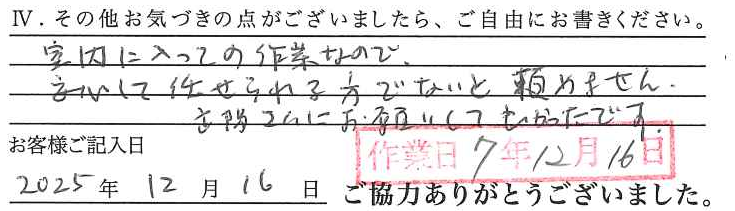 Ⅳ．その他お気づきの点がございましたら、ご自由にお書きください。
室内に入っての作業なので、
安心して任せられる方でないと頼めません.
さんにお願いしてよかったです.
お客様ご記入日
作業日 7年12月16日
2025年 12月 16日 ご協力ありがとうございました。